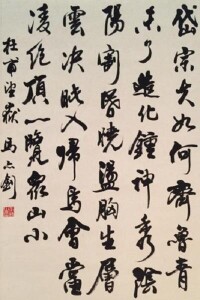 岱宗夫如何齊魯青
未了造化鍾神秀陰
陽割昏曉盪胸生層
雲決眥入歸鳥會當
凌絕頂一覽衆山小
杜甫望嶽